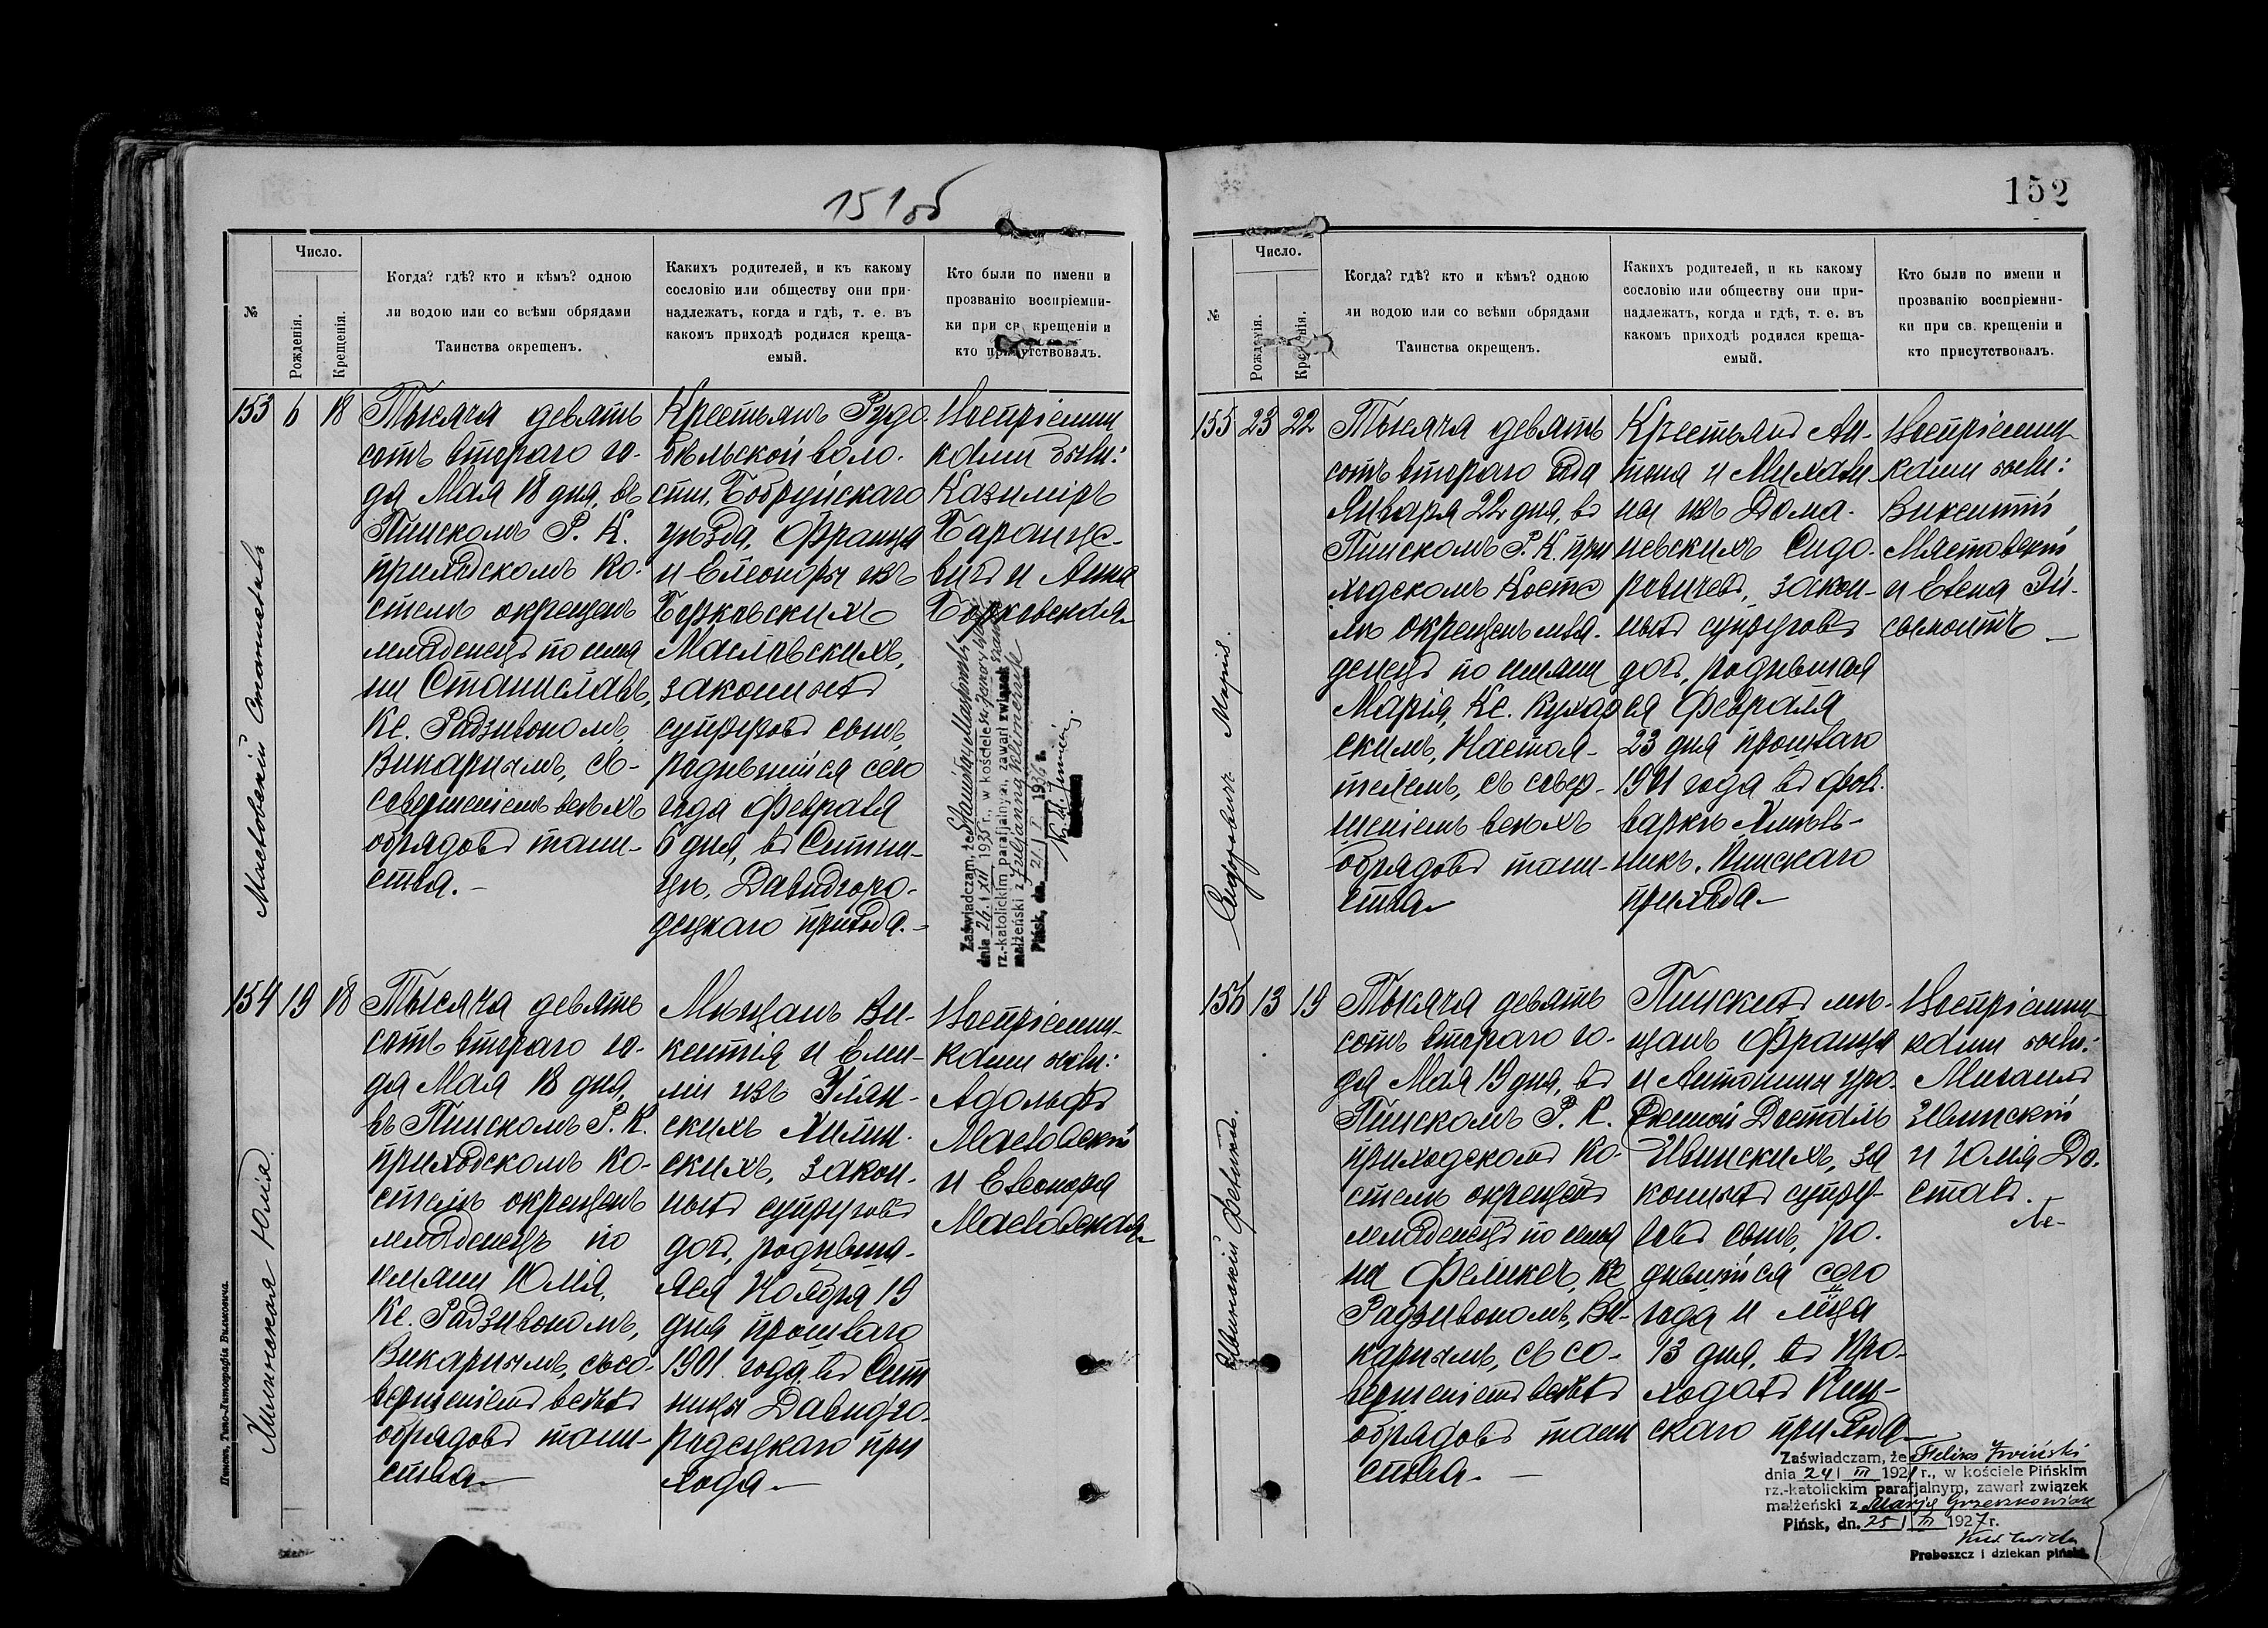 151об
№
Число.
Рожденія.
Крещенія.
Когда? гдѣ? кто и кѣмъ? одною
ли водою или со всѣми обрядами
Таинства окрещенъ.
Какихъ родителей, и къ какому
сословію или обществу они при-
надлежатъ, когда и гдѣ, т. е. въ
какомъ приходѣ родился креща-
емый.
Кто были по имени и
прозванію воспріемни-
ки при св. крещеніи и
кто присутствовалъ.
Масловскій Станиславъ
153 6 18
Тысяча девять
сотъ втораго го-
да Мая 18 дня, въ
Пинскомъ Р. К.
приходскомъ ко-
стелѣ окрещенъ
младенецъ по имя
ни Станиславъ,
Кс. Радзивономъ,
Викарнымъ, съ
совершеніемъ всѣхъ
обрядовъ таин-
ства.—
Крестьянъ Рудо
бѣльской воло-
сти, Бобруйскаго
уѣзда, Франца
и Елеоноры изъ
Борковскихъ
Масловскихъ,
законныхъ
супруговъ сынъ,
родившійся сего
года Февраля
6 дня, въ Ситни-
цѣ, Давидгоро-
децкаго прихода.—
Воспріемни
ками были:
Казиміръ
Баранце-
вичъ и Анна
Борковская
Zaświadczam, że Stanisław Masłowski
dnia 26 I XII 1935 r., w kościele
rz.-katolickim parafjalnym, zawarł związek
małżeński z Juljanną Klimczuk
Pińsk, dn. 2 I I 1936 r.
Хилинская Юлія.
154 19 18
Тысяча девять
сотъ втораго го-
да Мая 18 дня,
въ Пинскомъ Р. К.
приходскомъ ко-
стелѣ окрещенъ
младенецъ по
имяни Юлія,
Кс. Радзивономъ,
Викарнымъ, съ со-
вершеніемъ всѣхъ
обрядовъ таин-
ства—
Мѣщанъ Ви-
кентія и Еми-
ліи изъ Улян-
скихъ Хилин-
скихъ, закон-
ныхъ супруговъ
дочь, родивша-
яся Ноября 19
дня прошлаго
1901 года въ Сит
ницы Давидго-
родецкаго при
хода—
Воспріемни-
ками были:
Адольфъ
Масловскій
и Елеонора
Масловская
Пинскъ, Типо-Литографія Вильковича.
152
№
Число.
Рожденія.
Крещенія.
Когда? гдѣ? кто и кѣмъ? одною
ли водою или со всѣми обрядами
Таинства окрещенъ.
Какихъ родителей, и къ какому
сословію или обществу они при-
надлежатъ, когда и гдѣ, т. е. въ
какомъ приходѣ родился креща-
емый.
Кто были по имени и
прозванію воспріемни-
ки при св. крещеніи и
кто присутствовалъ.
Сидоровичъ Марія.
155 23 22
Тысяча девять
сотъ втораго года
Января 22 дня, въ
Пинскомъ Р. К. при
ходскомъ косте
лѣ окрещенъ мла-
денецъ по имяни
Марія, Кс. Кухар
скимъ, Настоя-
телемъ, съ совер-
шеніемъ всѣхъ
обрядовъ таин-
ства—
Крестьянъ Ан-
тона и Михали-
ны изъ Дома-
невскихъ Сидо-
ровичевъ, закон-
ныхъ супруговъ
дочь, родившая
ся Февраля
23 дня прошлаго
1901 года въ фоль
варкѣ
Пинскаго
прихода—
Воспріемни-
ками были:
Викентій
Мястовскій
и Елена Эй-
смонтъ—
Ивинскій Феликсъ.
156 13 19
Тысяча девять
сотъ втораго го-
да Мая 19 дня, въ
Пинскомъ Р. К.
приходскомъ ко-
стелѣ окрещенъ
младенецъ по имя
ни Феликсъ, Кс
Радзивономъ, Ви-
карнымъ, съ со-
вершеніемъ всѣхъ
обрядовъ таин
ства.—
Пинскихъ мѣ-
щанъ Франца
и Антонины уро-
жденной Досталь
Ивинскихъ, за
конныхъ супру-
говъ сынъ, ро-
дившійся сего
года и мѣца
13 дня, въ
Пин-
скаго прихода—
Воспріемни-
ками были:
Михаилъ
Ивинскій
и Юлія До-
сталь.—
Zaświadczam, że Feliks Iwiński
dnia 24 I III 1927 r., w kościele Pińskim
rz.-katolickim parafjalnym, zawarł związek
małżeński z Marją Grzeszkowiak
Pińsk, dn. 25 I III 1927 r.
Proboszcz i dziekan piński.